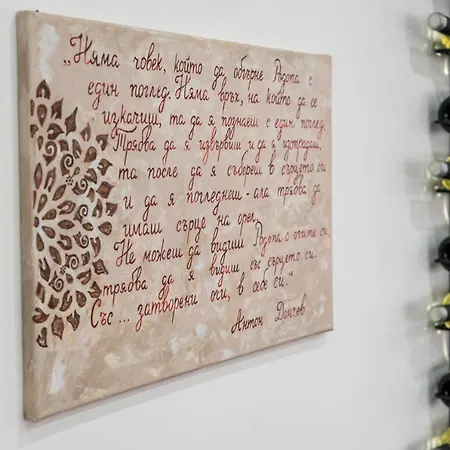 „Няма човек, който да обгърне Родопа с
един поглед. Няма връх, на който да се
изкачиш, та да я познаеш с един поглед.
Трябва да я извървиш и да я изстрадаш,
та после да я събереш в сърцето си
и да я погледнеш - ала трябва да
имаш сърце на орел.
Не можеш да видиш Родопа с очите си
трябва да я видиш със сърцето си.
Със ... затворени очи, в себе си."
Антон Дончев